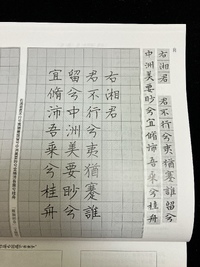 右湘君　君不行兮夷猶蹇誰留兮
中洲美要眇兮宜脩沛吾乘兮桂舟
右湘君
君不行兮夷猶蹇誰
留兮中洲美要眇兮
宜脩沛吾乘兮桂舟